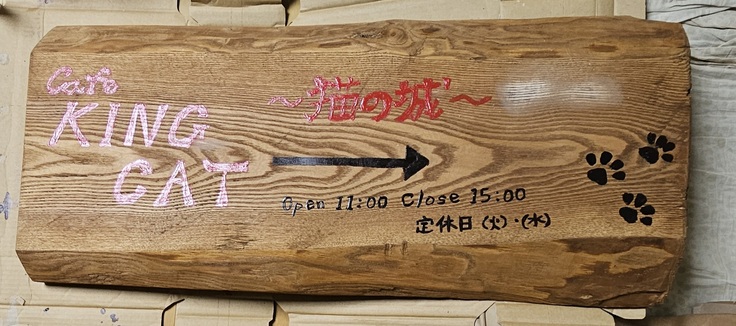 Cafe
KING
CAT
～猫の城～
Open 11:00 Close 15:00
定休日(火)・(水)